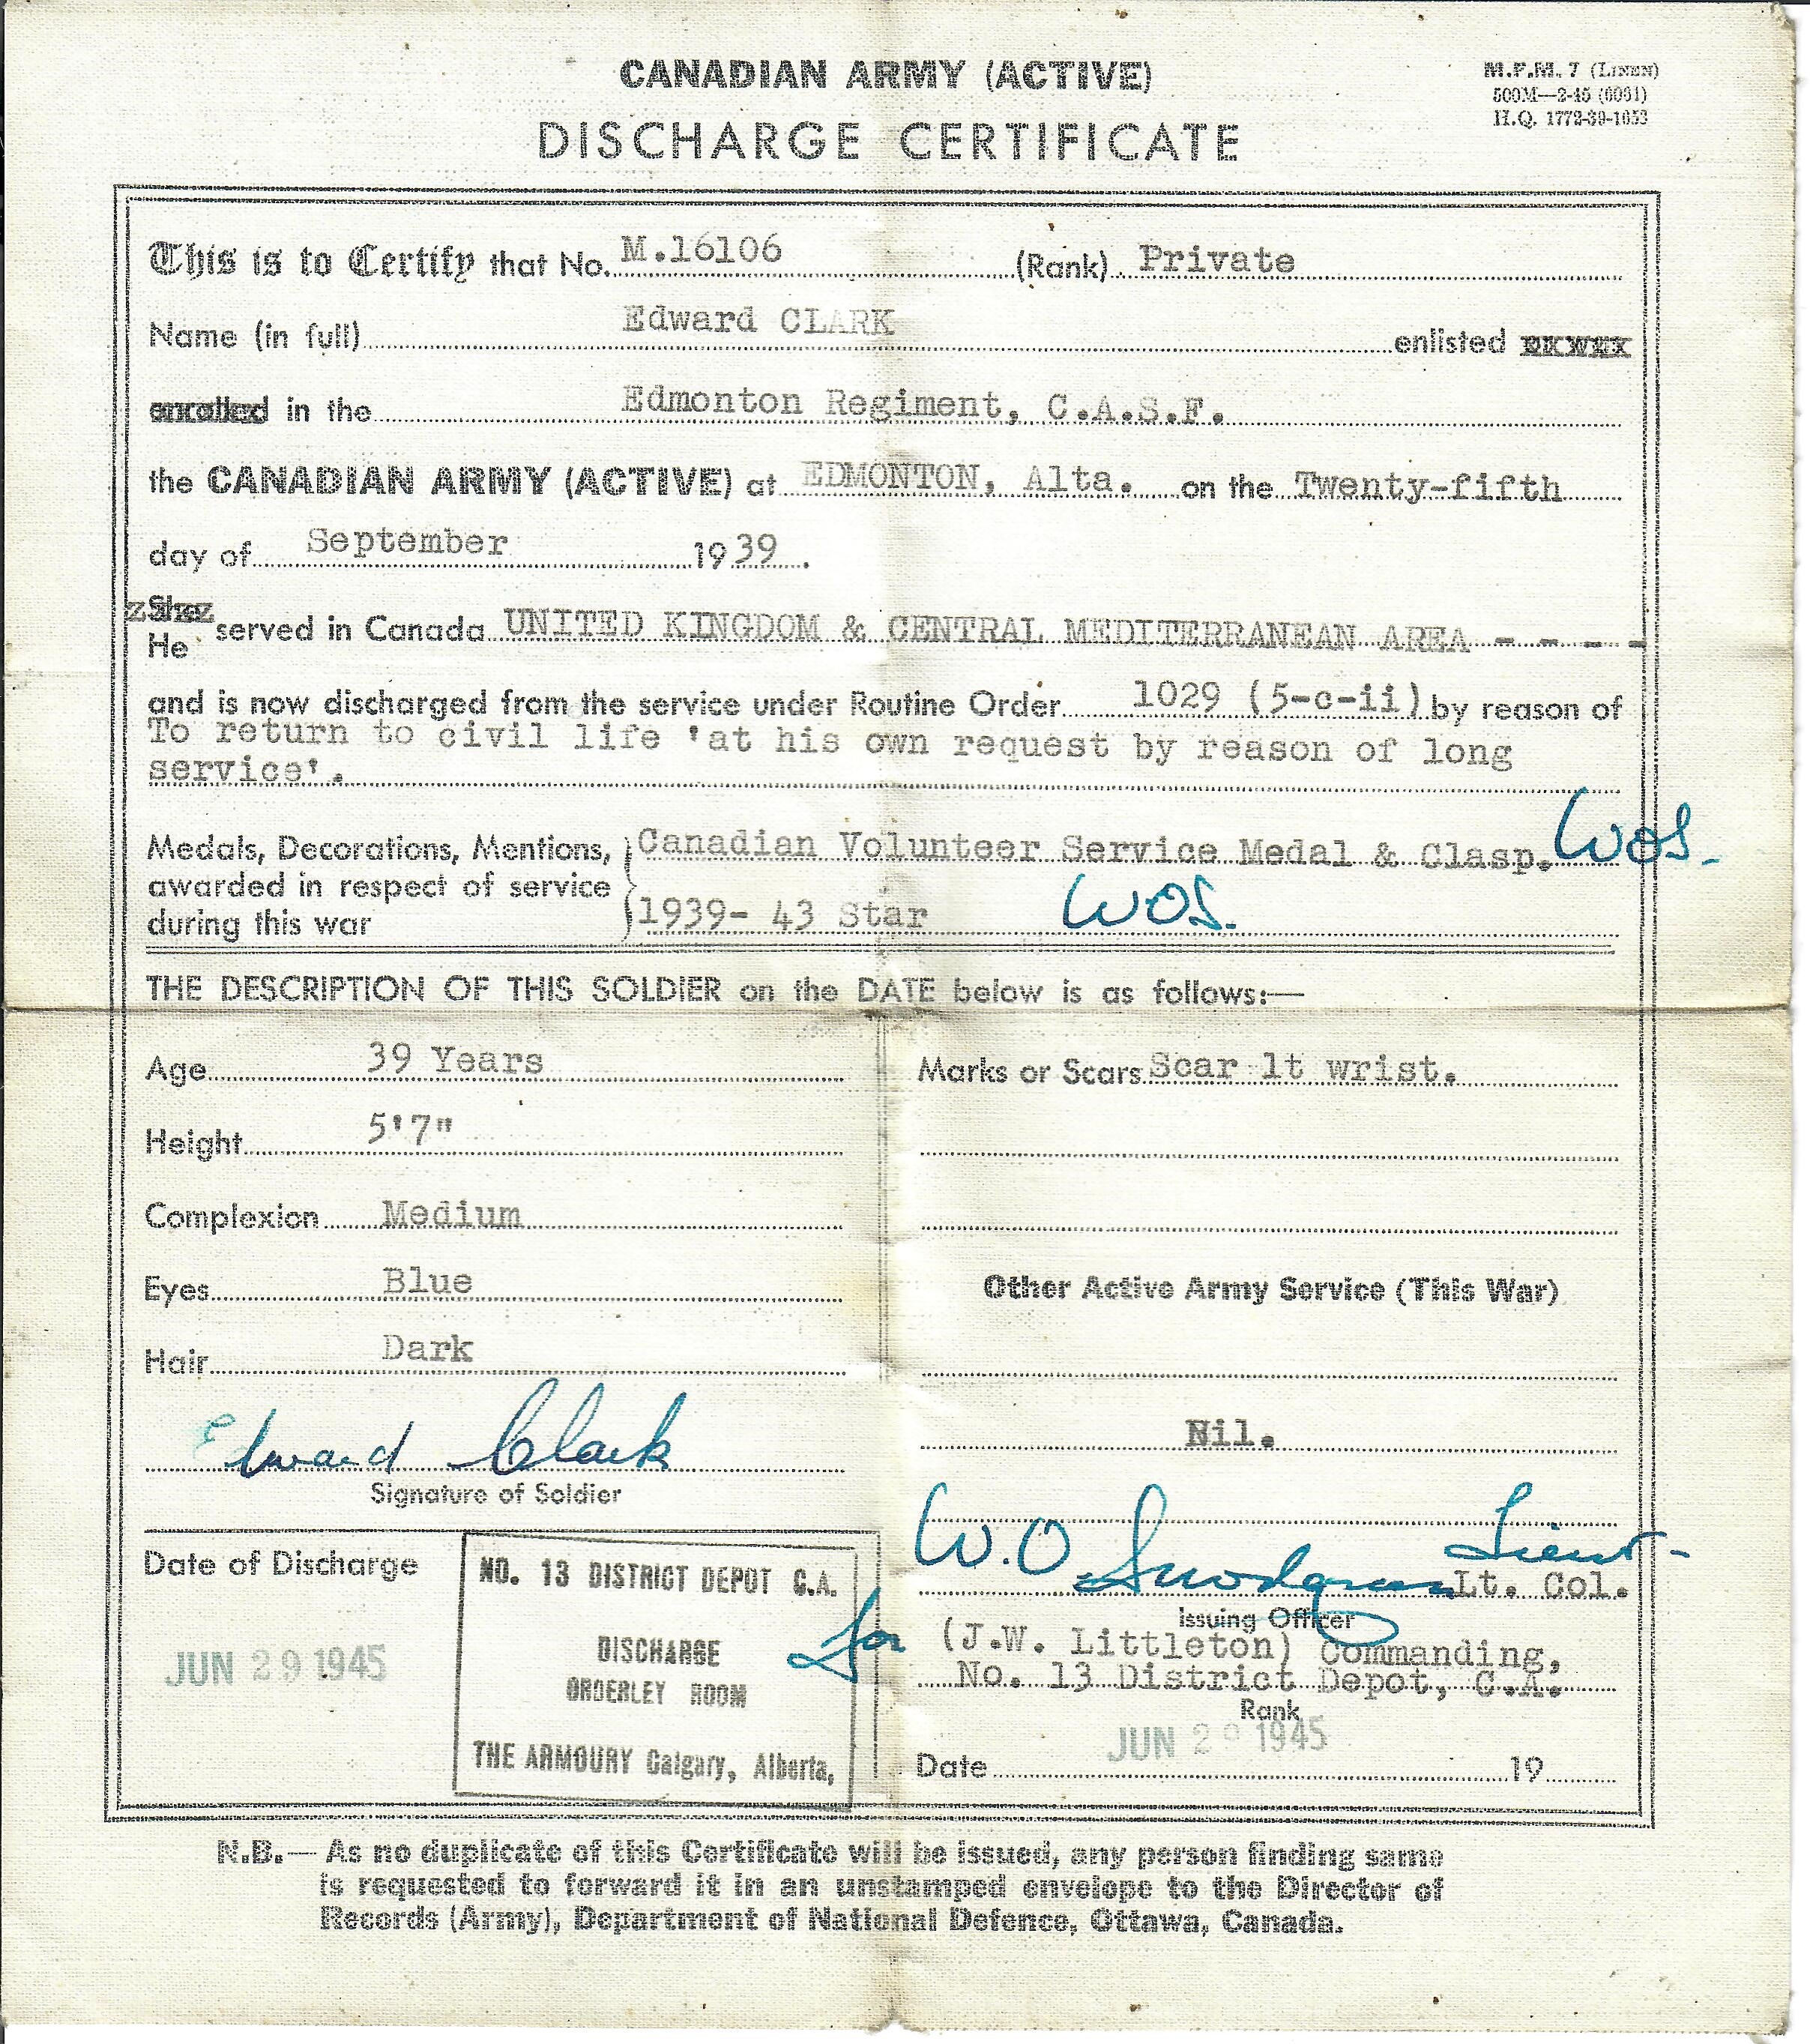 CANADIAN ARMY (ACTIVE)
DISCHARGE CERTIFICATE
M.F.M. 7 (LINEN)
500M—2-45 (6061)
H.Q. 1772-39-1653
This is to Certify that No. M.16106 (Rank) Private
Name (in full) Edward CLARK enlisted
in the Edmonton Regiment, C.A.S.F.
the CANADIAN ARMY (ACTIVE) at EDMONTON, Alta. on the Twenty-fifth
day of September 1939.
She
He served in Canada UNITED KINGDOM & CENTRAL MEDITERRANEAN AREA - - - -
and is now discharged from the service under Routine Order 1029 (5-c-ii) by reason of
To return to civil life 'at his own request by reason of long
service'.
Medals, Decorations, Mentions, awarded in respect of service during this war
Canadian Volunteer Service Medal & Clasp. WOS.
1939- 43 Star WOS.
THE DESCRIPTION OF THIS SOLDIER on the DATE below is as follows:—
Age 39 Years
Height 5'7"
Complexion Medium
Eyes Blue
Hair Dark
Marks or Scars Scar lt wrist.
Other Active Army Service (This War)
Nil.
Edward Clark
Signature of Soldier
Date of Discharge
JUN 29 1945
NO. 13 DISTRICT DEPOT C.A.
DISCHARGE
ORDERLEY ROOM
THE ARMOURY Calgary, Alberta,
W.O. Lieut-
Lt. Col.
Issuing Officer
for (J.W. Littleton) Commanding,
No. 13 District Depot, C.A.
Rank
Date JUN 29 1945 19
N.B.— As no duplicate of this Certificate will be issued, any person finding same
is requested to forward it in an unstamped envelope to the Director of
Records (Army), Department of National Defence, Ottawa, Canada.